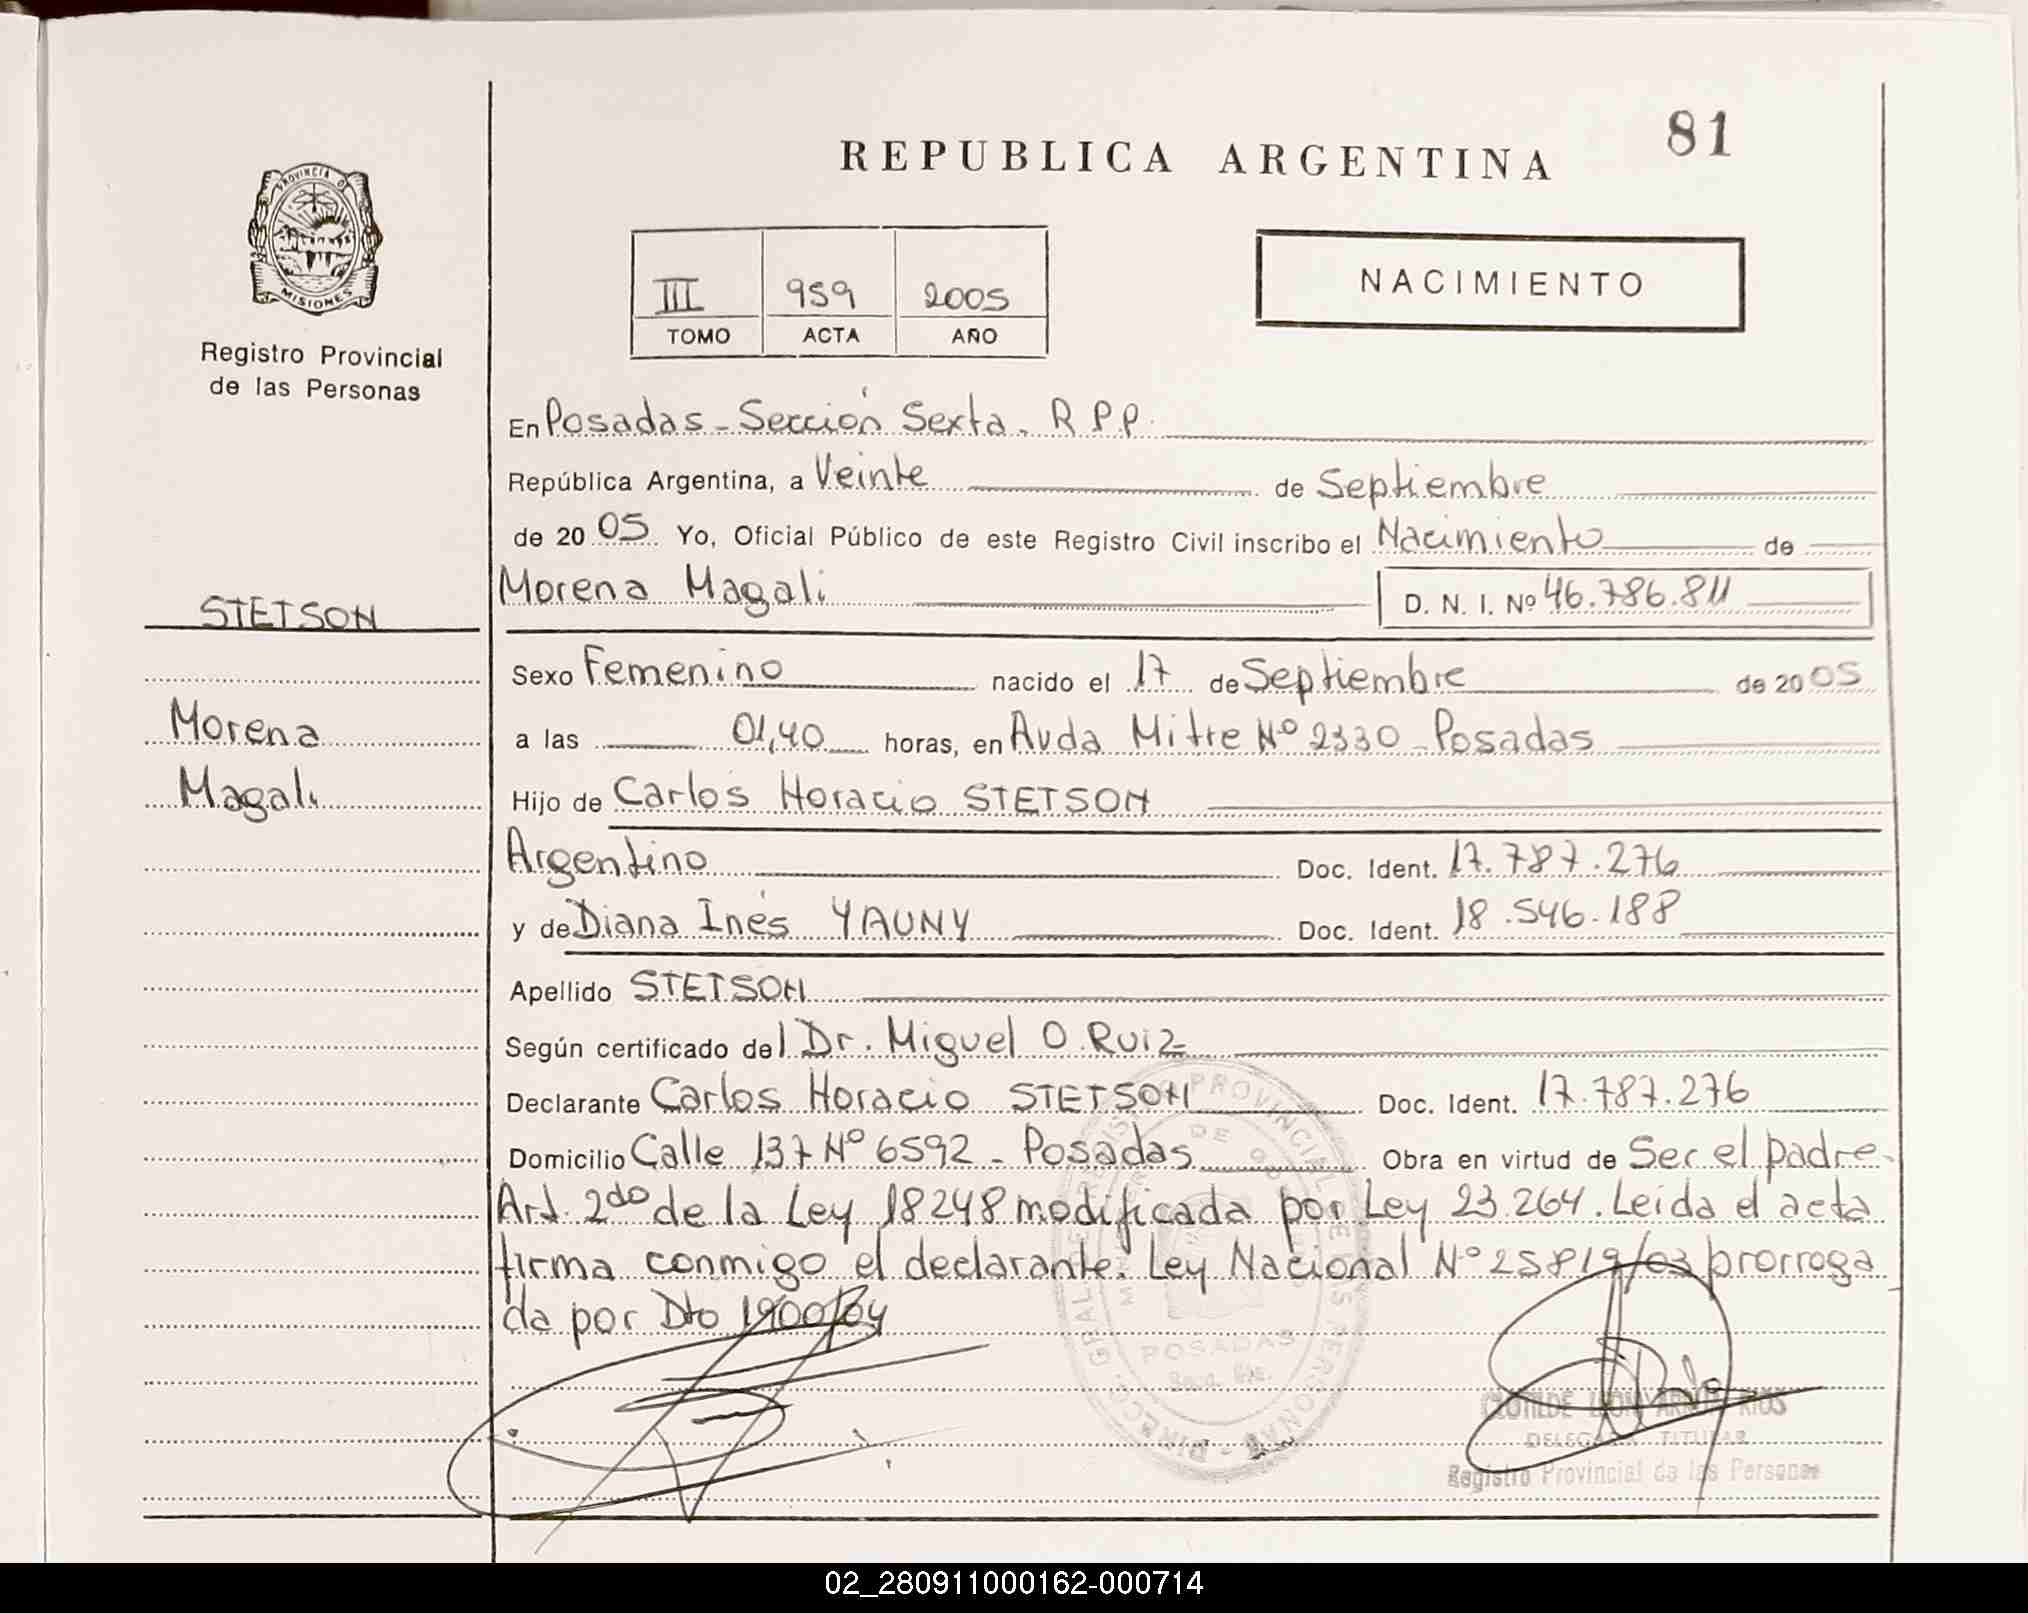 81
REPUBLICA ARGENTINA
PROVINCIA DE
MISIONES
Registro Provincial
de las Personas
NACIMIENTO
III 959 2005
TOMO ACTA AÑO
En Posadas - Sección Sexta. R.P.P.
República Argentina, a Veinte de Septiembre
de 2005 Yo, Oficial Público de este Registro Civil inscribo el Nacimiento de
Morena Magali D. N. I. Nº 46.786.811
STETSON
Morena
Magali
Sexo Femenino nacido el 17 de Septiembre de 2005
a las 01,40 horas, en Avda Mitre Nº 2330 - Posadas
Hijo de Carlos Horacio STETSON
Argentino Doc. Ident. 17.787.276
y de Diana Inés YAUNY Doc. Ident. 18.546.188
Apellido STETSON
Según certificado del Dr. Miguel O. Ruiz
Declarante Carlos Horacio STETSON Doc. Ident. 17.787.276
Domicilio Calle 137 Nº 6592 - Posadas Obra en virtud de Ser el padre.
Art. 2do de la Ley 18248 modificada por Ley 23.264. Leida el acta
firma conmigo el declarante. Ley Nacional Nº 25819/03 prorroga
da por Dto 1900/04
POSADAS
CLOTILDE RIOS
DELEGADA TITULAR
Registro Provincial de las Personas
02_280911000162-000714